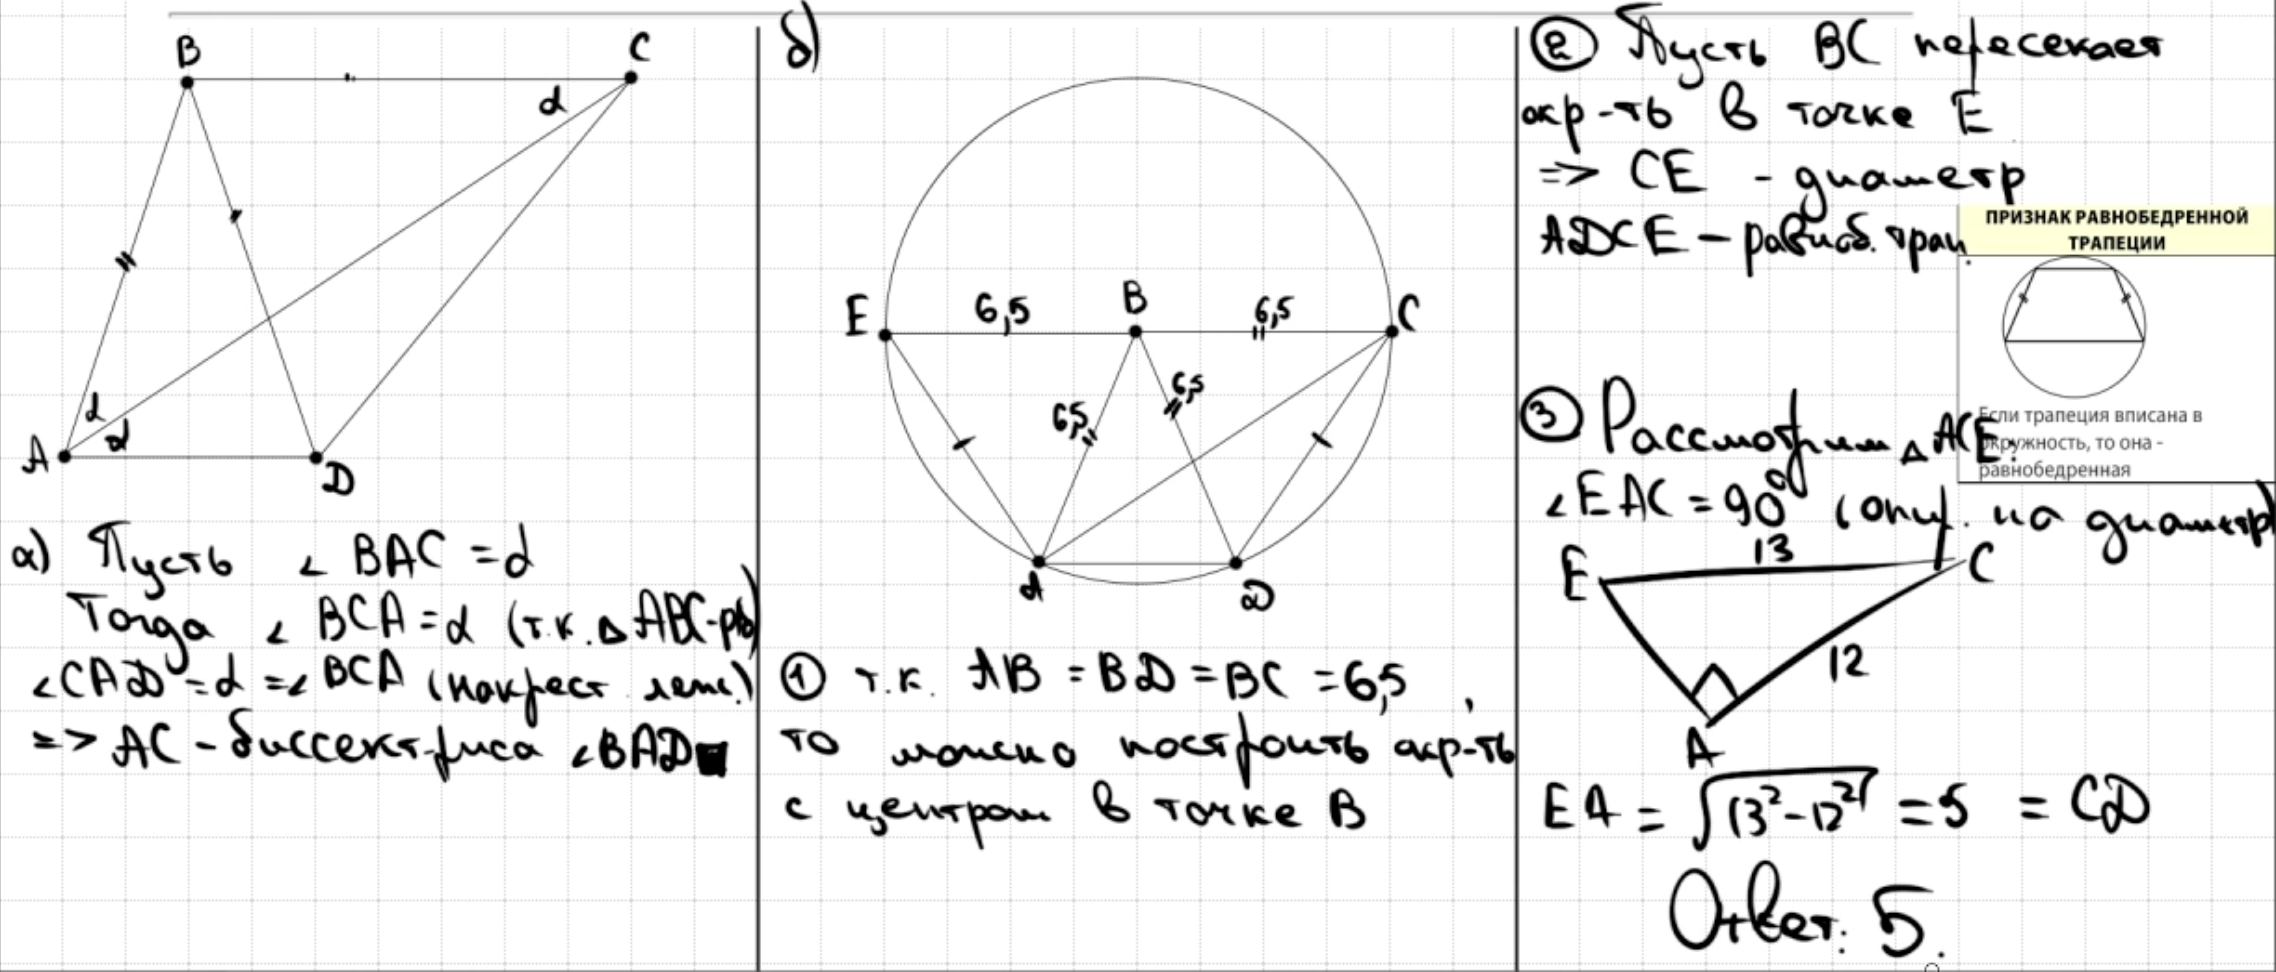 B
C
α
α
α
A
D
а) Пусть ∠ BAC = α
Тогда ∠ BCA = α (т.к. △ ABC-рб)
∠CAD = α = ∠ BCA (накрест леж.)
=> AC - биссектриса ∠BAD
б)
E
6,5
B
6,5
C
6,5
6,5
A
D
① т.к. AB = BD = BC = 6,5,
то можно построить окр-ть
с центром в точке B
② Пусть BC пересекает
окр-ть в точке E
=> CE - диаметр
ADCE - равноб. трап.
ПРИЗНАК РАВНОБЕДРЕННОЙ
ТРАПЕЦИИ
Если трапеция вписана в
окружность, то она -
равнобедренная
③ Рассмотрим △ ACE:
∠EAC = 90° (опир. на диаметр)
13
E
C
12
A
EA = √13²-12² = 5 = CD
Ответ: 5.